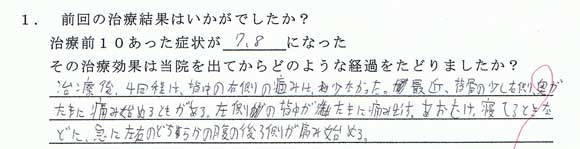 1. 前回の治療結果はいかがでしたか？
治療前１０あった症状が 7.8 になった
その治療効果は当院を出てからどのような経過をたどりましたか？
治療後、4日程は、背中の右側の痛みは、少なかった。最近、背骨の少し右側が
たまに痛み始めるときがある。左側の背中がたまに痛み出す。あおむけ、寝てるときな
どに、急に左右のどちらかの腹の後ろ側が痛み始める。